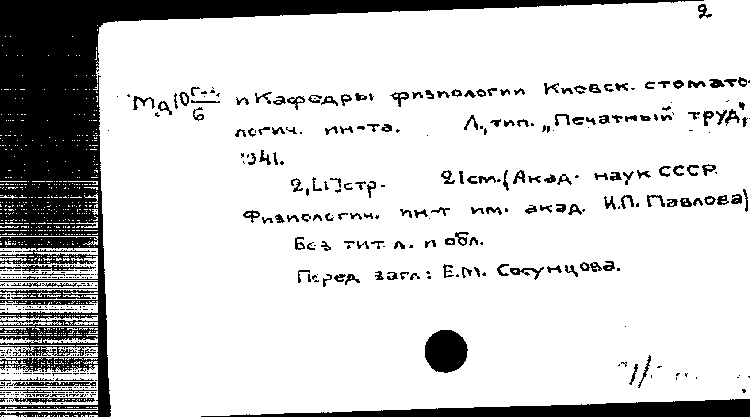 2
и Кафедры физиологии Киевск. стомато-
логич. ин-та. Л., тип. „Печатный труд",
1941.
2,[1]стр. 21см.(Акад. наук СССР.
Физиологич. ин-т им. акад. И.П. Павлова)
Без тит л. и обл.
Перед загл: Е.М. Согумцова.